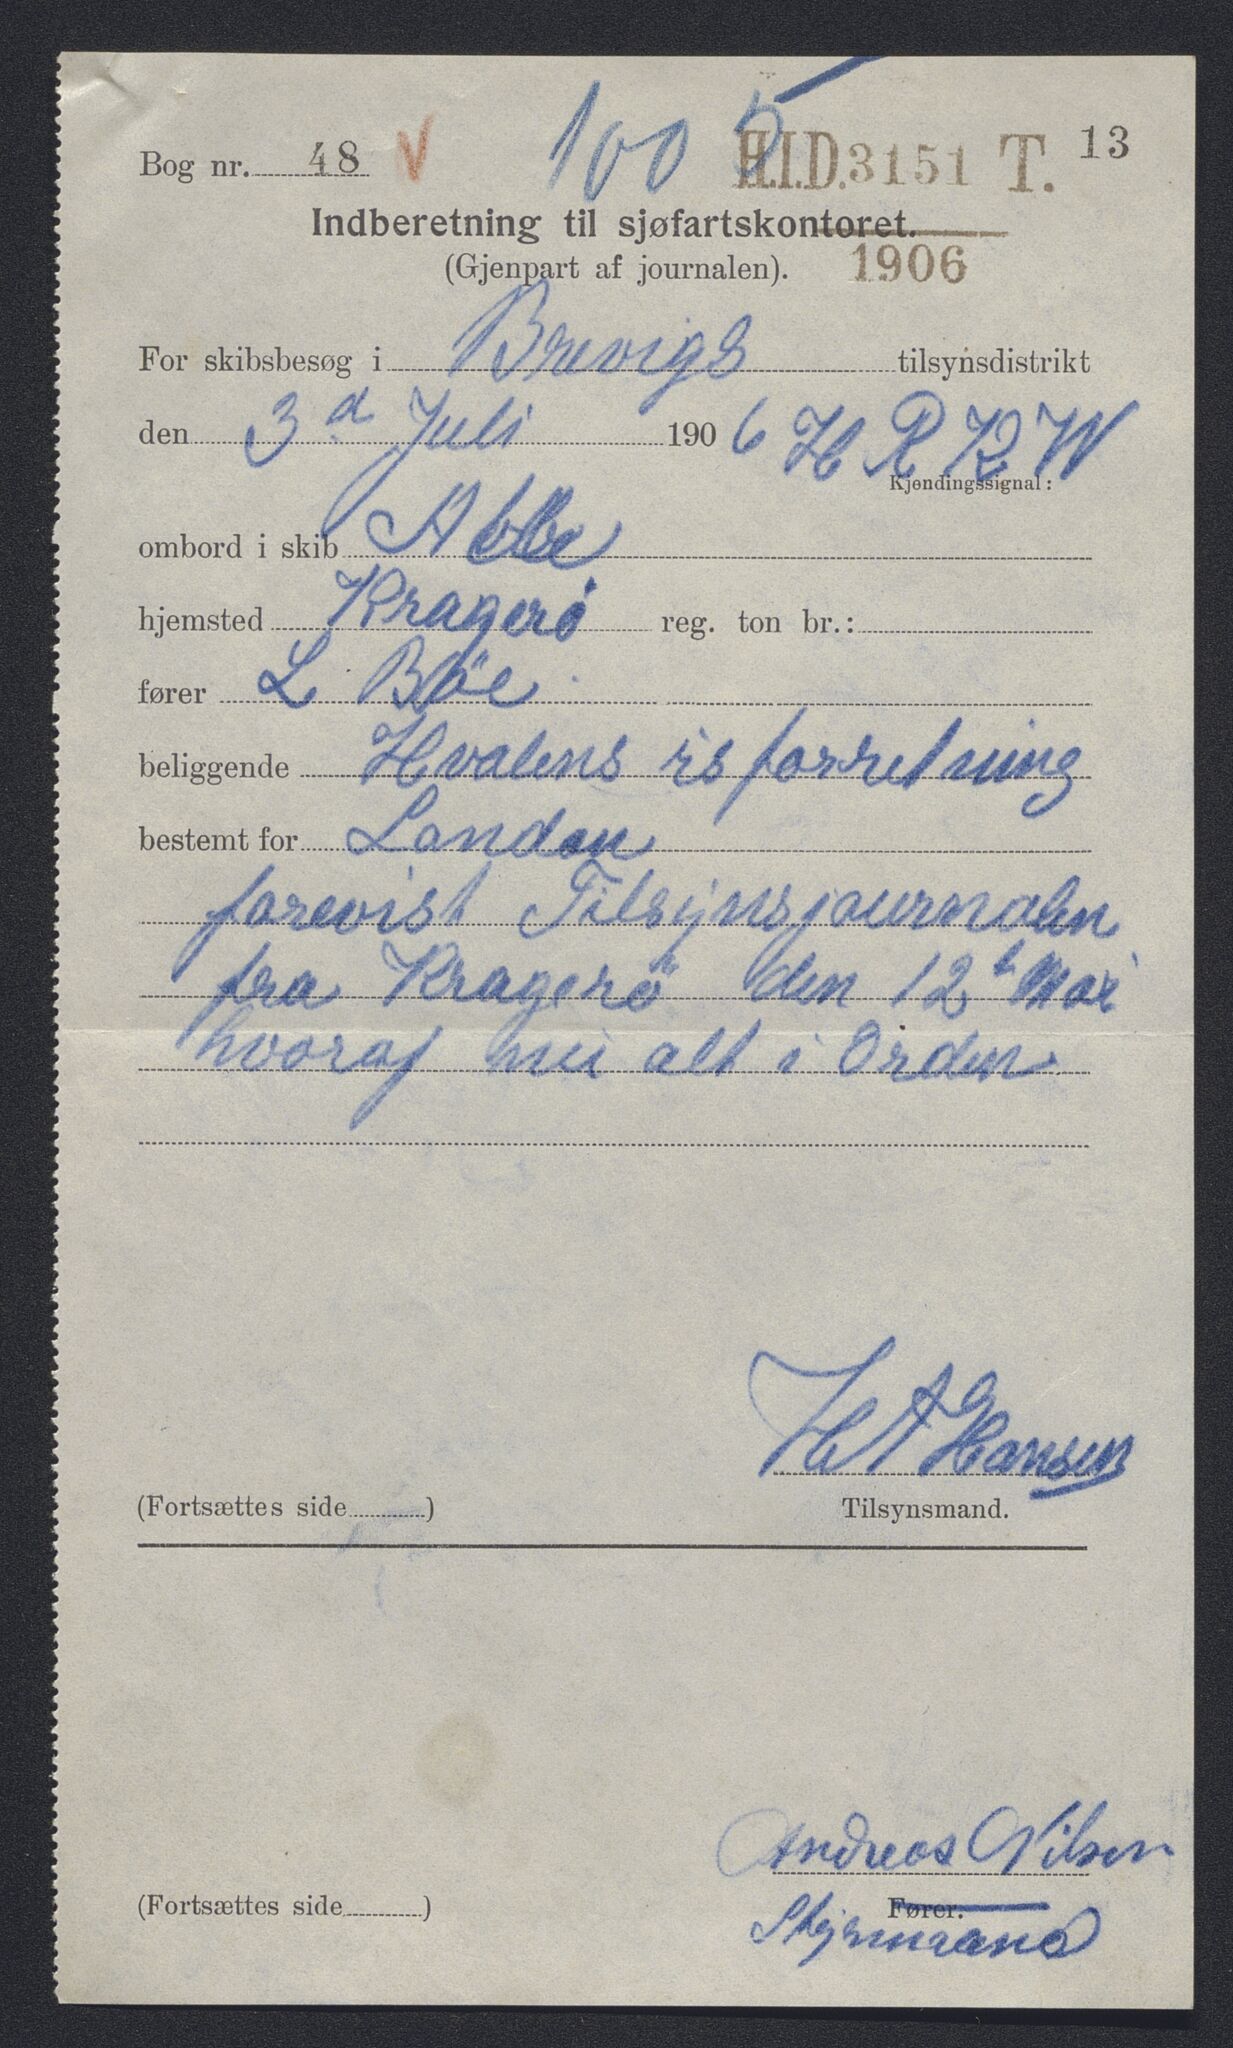 100 5
Bog nr. 48 V H.I.D. 3151 T. 13
Indberetning til sjøfartskontoret.
(Gjenpart af journalen). 1906
For skibsbesøg i Brevigs tilsynsdistrikt
den 3d Juli 1906 H R K W
Kjendingssignal:
ombord i skib
hjemsted Kragerö reg. ton br.:
fører L Böe
beliggende Hvalens isforretning
bestemt for London
forevist Tilsynsjournalen
fra Kragerö den 12t Mai
hvoraf alt i Orden
H A Hansen
(Fortsættes side) Tilsynsmand.
Andreas Nilsen
(Fortsættes side) Fører.
Styrmand